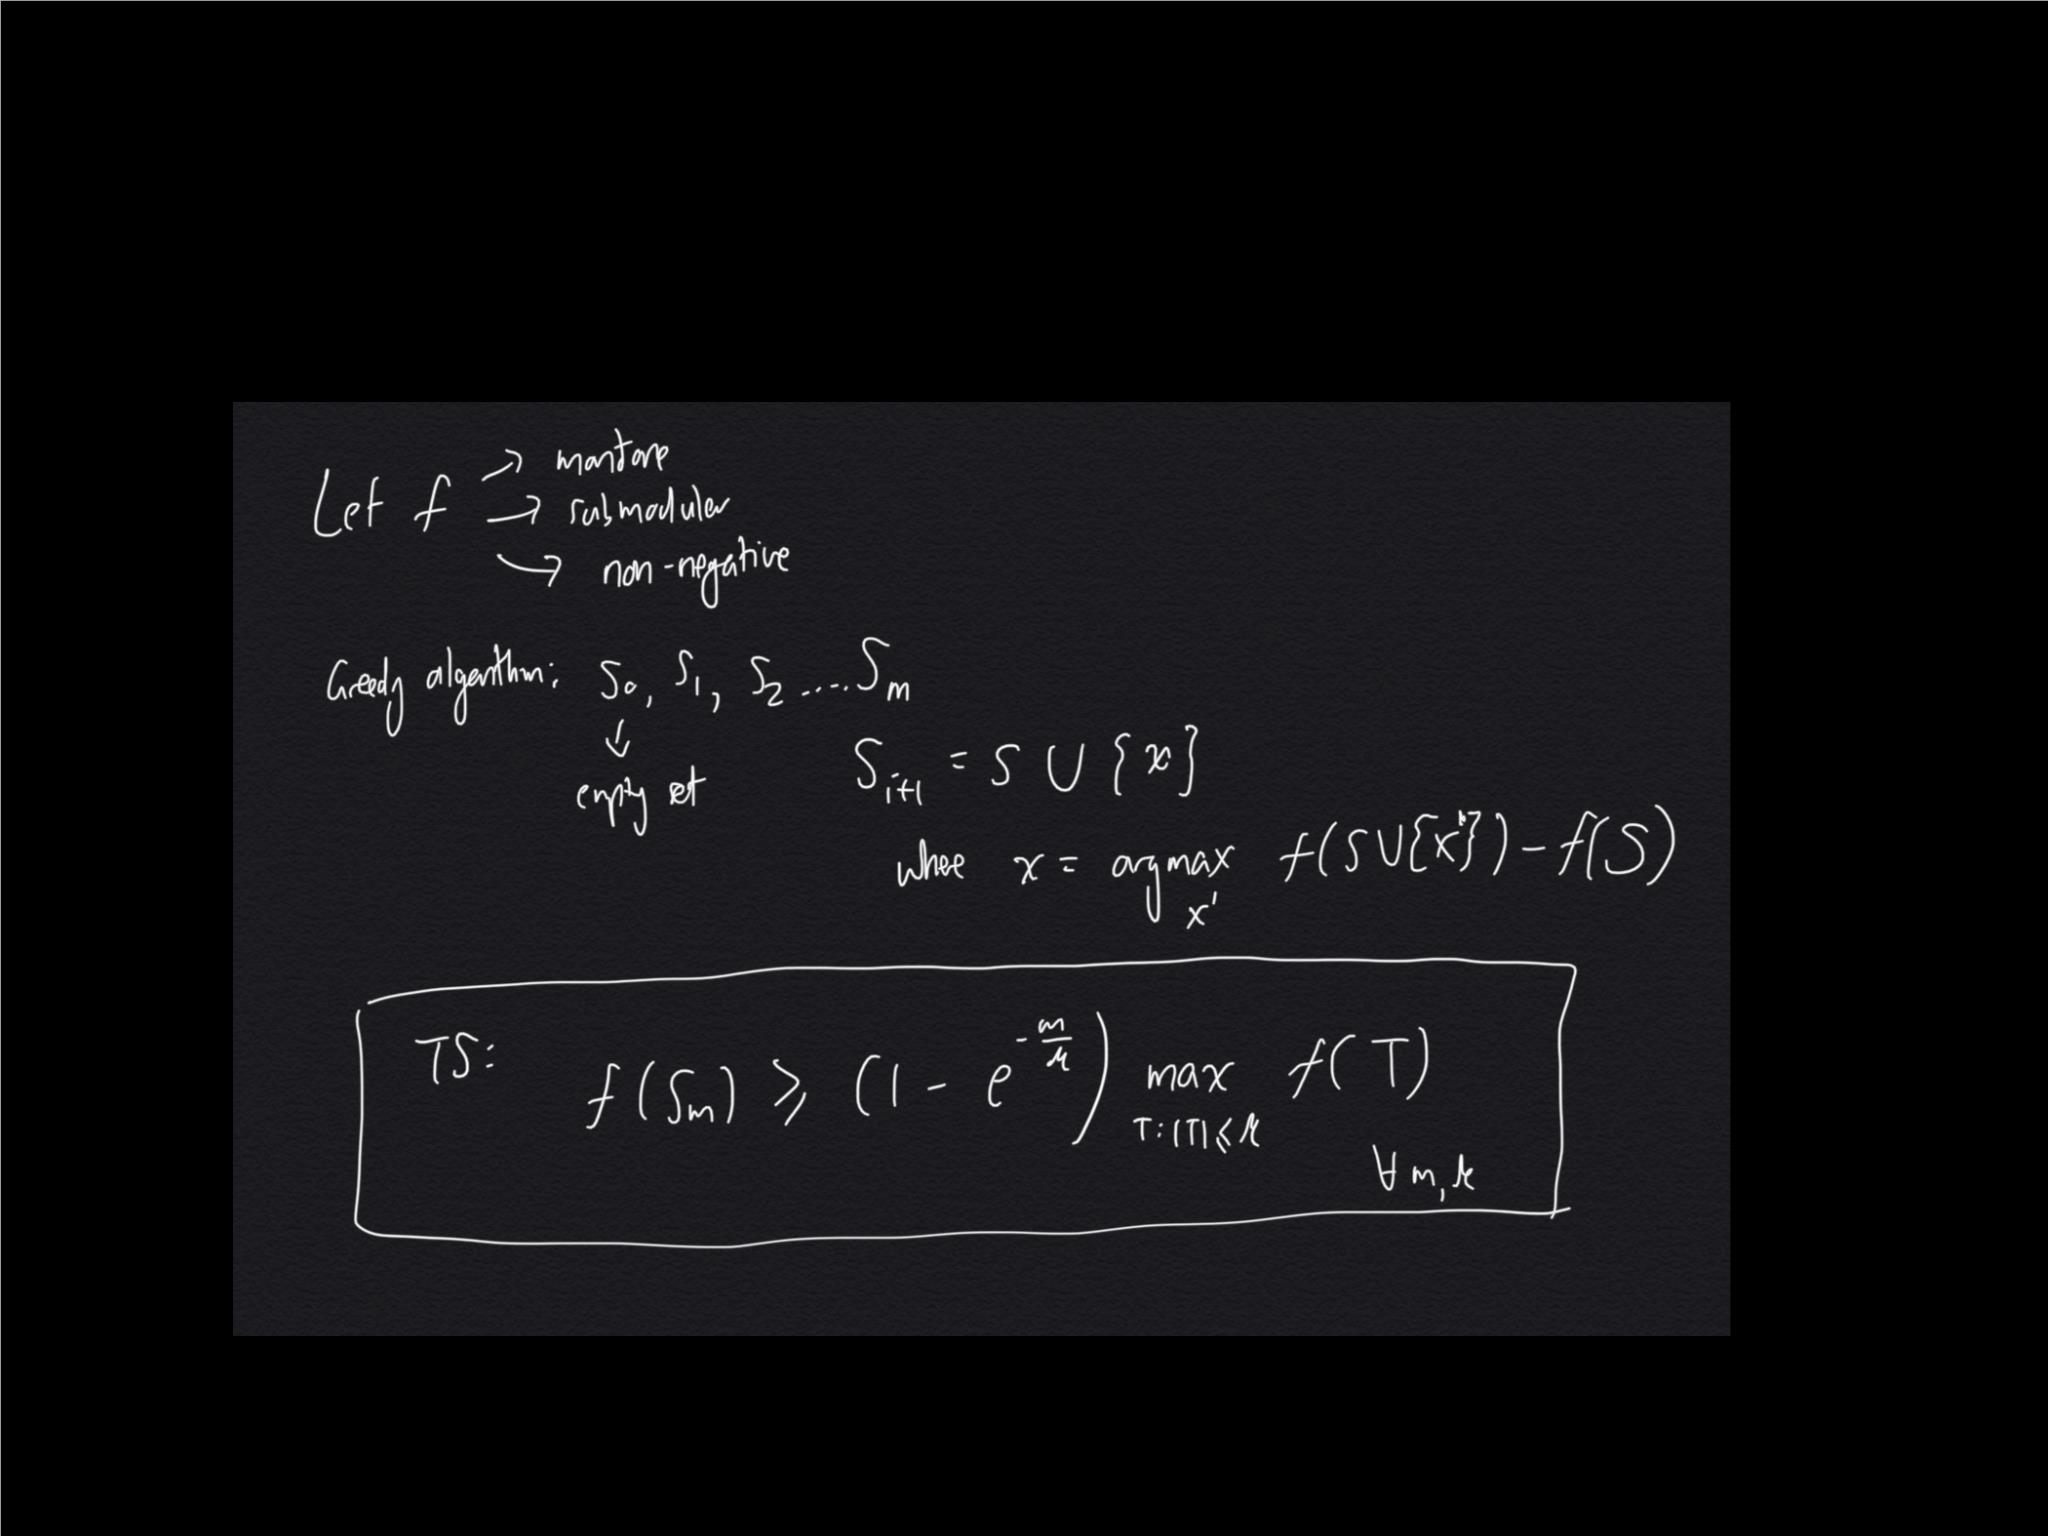 Let f → monotone
→ submodular
→ non-negative
Greedy algorithm: S₀, S₁, S₂ ..... Sₘ
↓
empty set
Sᵢ₊₁ = S ∪ {x}
where x = argmax f(S∪{x'}) - f(S)
x'
TS: f(Sₘ) ⩾ (1 - e^(-m/k)) max f(T)
T:|T|⩽k
∀ m, k